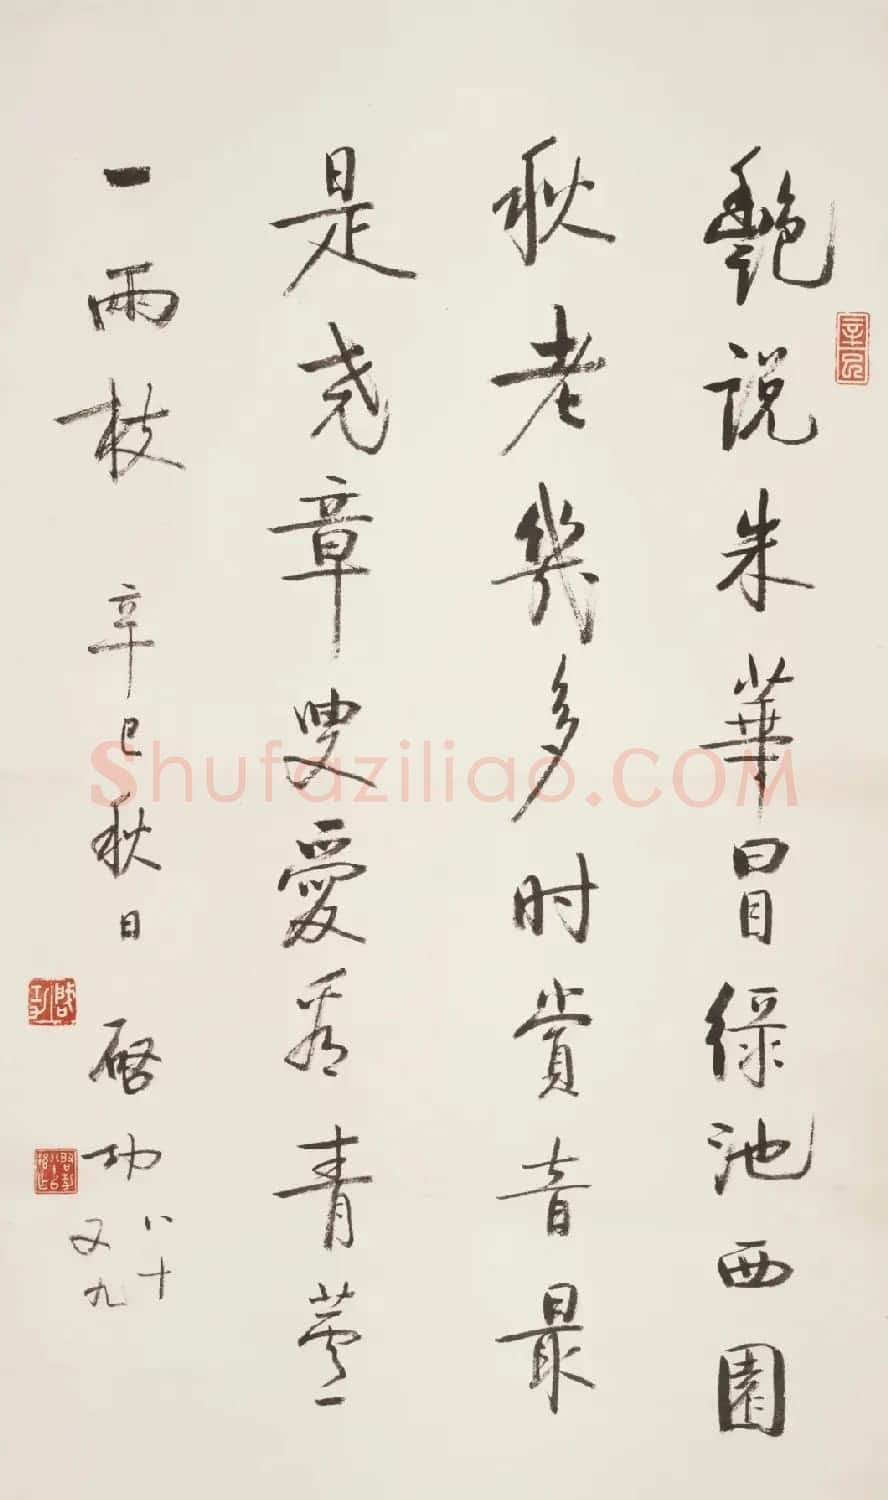 艷說朱華冒綠池西園
秋老幾多时賞音最
是尧章叟愛看青蘆
一兩枝 辛巳秋日 啓功 八十
又九
Shufaziliao.COM